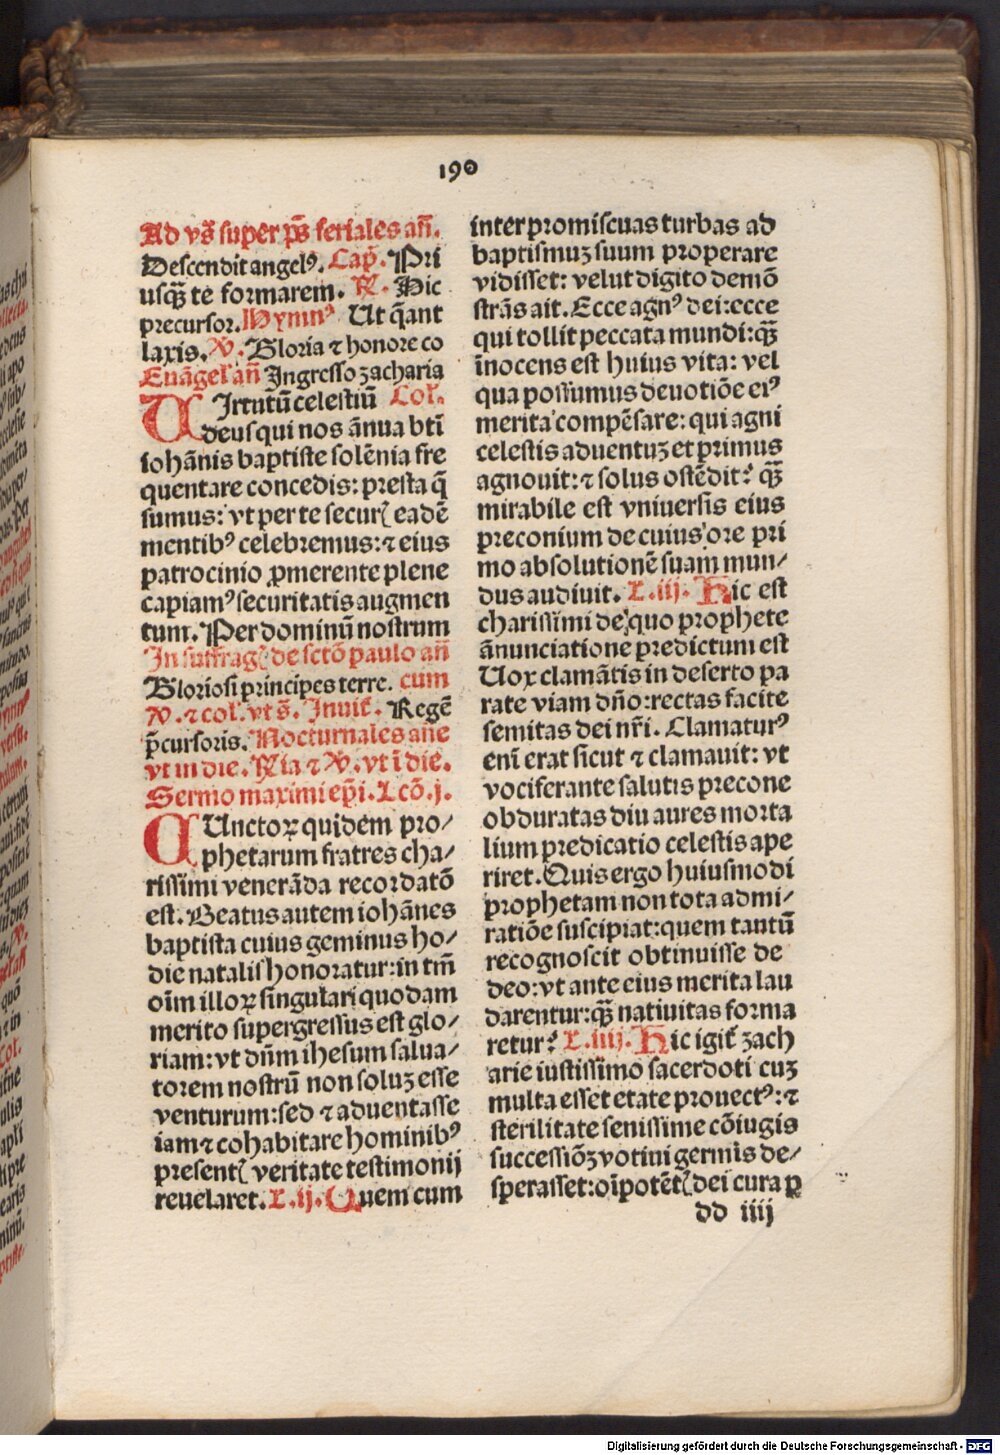 190
Ad vs̄ super ps̄ feriales an̄.
Descendit angelꝰ. Cap̄. Pri
usqȝ te formarem. ℟. Hic
precursor. Hymnꝰ Ut q̄ant
laxis. ℣. Gloria ⁊ honore co
Euāgeł an̄ Ingresso zacharia
VIrtutū celestiū Coł.
deus qui nos ānua bti̅
iohānis baptiste solēnia fre
quentare concedis: presta q̄
sumus: vt per te securꝭ eadē
mentibꝰ celebremus: ⁊ eius
patrocinio ꝓmerente plene
capiamꝰ securitatis augmen
tum. Per dominū nostrum
In suffragꝭ de sctō paulo an̄
Gloriosi principes terre. cum
℣. ⁊ coł. vt s̄. Inuit̄. Regē
p̄cursoris. Nocturnales an̄e
vt in die. R̄ia ⁊ ℣. vt ī die.
Sermo maximi ep̄i. Lcō. j.
CUnctoꝝ quidem pro/
phetarum fratres cha/
rissimi venerāda recordatō
est. Beatus autem iohānes
baptista cuius geminus ho/
die natalis honoratur: in tm̄
oīm illoꝝ singulari quodam
merito supergressus est glo/
riam: vt dn̄m ihesum salua/
torem nostrū non soluȝ esse
venturum: sed ⁊ aduentasse
iam ⁊ cohabitare hominibꝰ
presentꝭ veritate testimonij
reuelaret. L. ij. Quem cum
inter promiscuas turbas ad
baptismuȝ suum properare
vidisset: velut digito demō
strās ait. Ecce agnꝰ dei: ecce
qui tollit peccata mundi: qȝ̄
īnocens est huius vita: vel
qua possumus deuotiōe eiꝰ
merita compēsare: qui agni
celestis aduentuȝ et primus
agnouit: ⁊ solus ostēdit? qȝ̄
mirabile est vniuersis eius
preconium de cuius ore pri
mo absolutionē suam mun/
dus audiuit. L. iij. Hic est
charissimi de quo prophete
ānunciatione predictum est
Uox clamātis in deserto pa
rate viam dn̄o: rectas facite
semitas dei nr̄i. Clamaturꝰ
enī erat sicut ⁊ clamauit: vt
vociferante salutis precone
obduratas diu aures morta
lium predicatio celestis ape
riret. Quis ergo huiusmodi
prophetam non tota admi/
ratiōe suscipiat: quem tantū
recognoscit obtinuisse de
deo: vt ante eius merita lau
darentur: qȝ̄ natiuitas forma
retur? L. iiij. Hic igit̄ zach
arie iustissimo sacerdoti cuȝ
multa esset etate prouectꝰ: ⁊
sterilitate senissime cōiugis
successiōȝ votini germīs de/
sperasset: oīpotētꝭ dei cura ꝑ
dd iiij
Digitalisierung gefördert durch die Deutsche Forschungsgemeinschaft - DFG